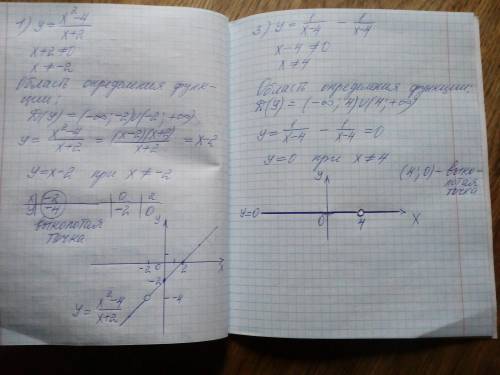 1) y = x²-4 / x+2
x+2 ≠ 0
x ≠ -2
Область определения функ-
ции:
D(y) = (-∞; -2)∪(-2; +∞)
y = x²-4 / x+2 = (x-2)(x+2) / x+2 = x-2
y = x-2 при x ≠ -2
x | -2 | 0 | 2
y | -4 | -2 | 0
выколотая
точка
y
-2 0 2 x
-2
-4
y = x²-4 / x+2
3) y = 1 / x-4 - 1 / x-4
x-4 ≠ 0
x ≠ 4
Область определения функции:
D(y) = (-∞; 4)∪(4; +∞)
y = 1 / x-4 - 1 / x-4 = 0
y = 0 при x ≠ 4
(4; 0) - выко-
лотая
точка
y
y=0 0 4 x